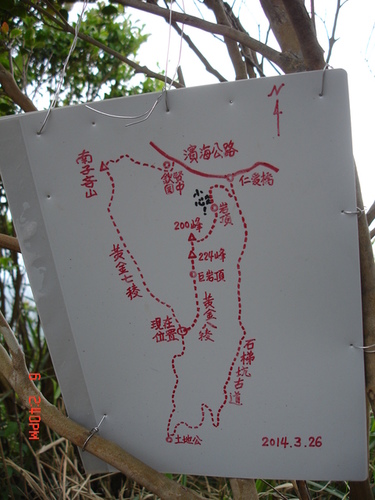 N
濱海公路
南子吝山
欽賢國中
仁愛橋
小心!
岩頂
200峰
224峰
巨岩頂
黃金七稜
黃金八稜
現在位置
石梯坑古道
土地公
2014.3.26
6 2:40PM